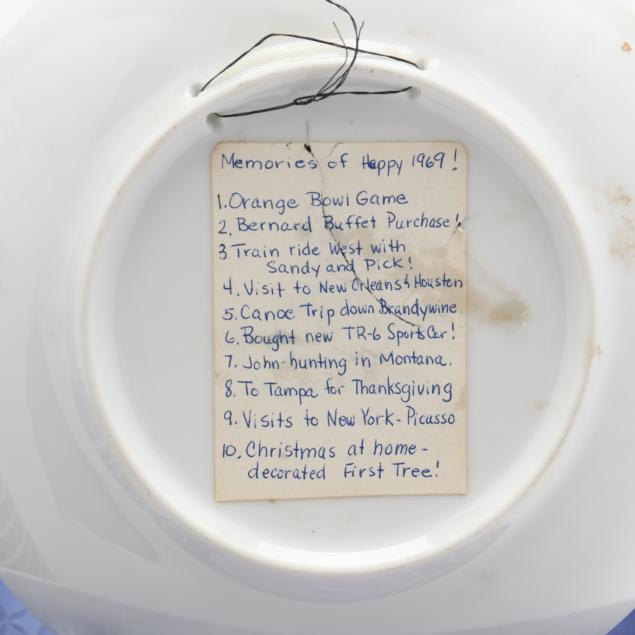 Memories of Happy 1969!
1. Orange Bowl Game
2. Bernard Buffet Purchase!
3. Train ride West with
Sandy and Pick!
4. Visit to New Orleans & Houston
5. Canoe Trip down Brandywine
6. Bought new TR-6 Sports Car!
7. John-hunting in Montana.
8. To Tampa for Thanksgiving
9. Visits to New York - Picasso
10. Christmas at home -
decorated First Tree!